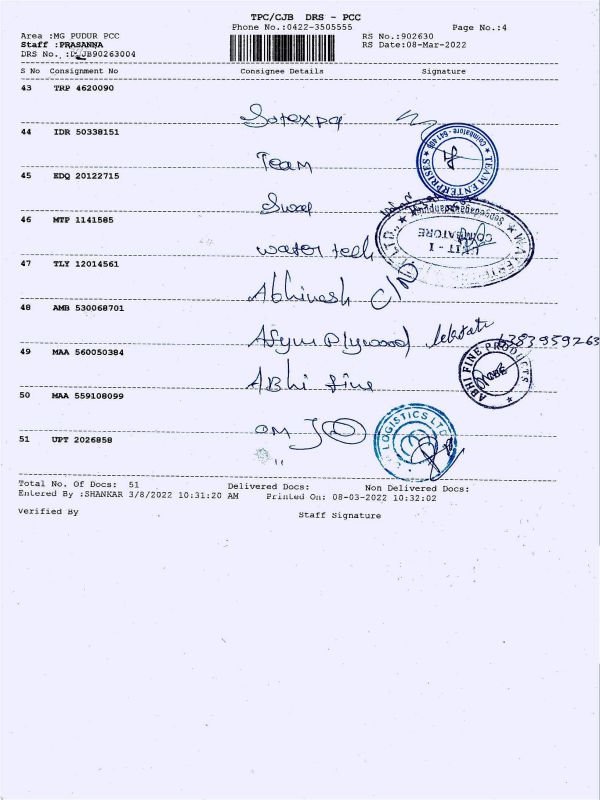 TPC/CJB DRS - PCC
Phone No.:0422-3505555
Page No.:4
Area :MG PUDUR PCC
RS No.:902630
Staff :PRASANNA
RS Date:08-Mar-2022
DRS No. :D JB90263004
S No Consignment No Consignee Details Signature
43 TRP 4620090
44 IDR 50338151
Team
45 EDQ 20122715
TEAM ENTERPRISES
Coimbatore
46 MTP 1141585
water tech
UNIT - I
COIMBATORE
47 TLY 12014561
Abhinash
48 AMB 530068701
Plywood
49 MAA 560050384
ABhi fine
ABHI FINE PRODUCTS
50 MAA 559108099
om
LOGISTICS LTD
51 UPT 2026858
"
Total No. Of Docs: 51 Delivered Docs: Non Delivered Docs:
Entered By :SHANKAR 3/8/2022 10:31:20 AM Printed On: 08-03-2022 10:32:02
verified By Staff Signature